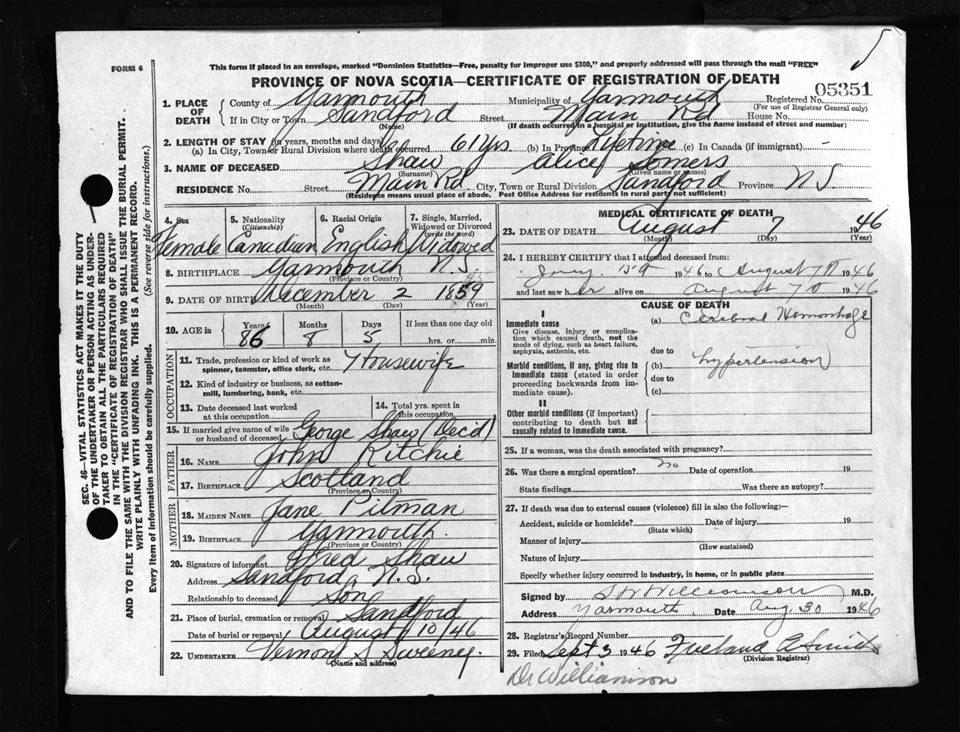 FORM 6
This form if placed in an envelope, marked "Dominion Statistics—Free, penalty for improper use $300," and properly addressed will pass through the mail "FREE"
PROVINCE OF NOVA SCOTIA—CERTIFICATE OF REGISTRATION OF DEATH
05351
1. PLACE OF DEATH County of Yarmouth Municipality of Yarmouth Registered No. (For use of Registrar General only)
If in City or Town Sandford (Name) Street Main Rd House No.
(If death occurred in a hospital or institution, give the name instead of street and number)
2. LENGTH OF STAY (in years, months and days)
(a) In City, Town or Rural Division where death occurred 61 Yrs. (b) In Province Lifetime (c) In Canada (if immigrant) -
3. NAME OF DECEASED Shaw (Surname) Alice Somers (Given name or names)
RESIDENCE No. Street Main Rd City, Town or Rural Division Sandford Province N.S.
(Residence means usual place of abode. Post Office Address for residents in rural parts not sufficient)
4. Sex Female
5. Nationality (Citizenship) Canadian
6. Racial Origin English
7. Single, Married, Widowed or Divorced (Write the word) Widowed
8. BIRTHPLACE Yarmouth N.S. (Province or Country)
9. DATE OF BIRTH December 2 1859 (Month) (Day) (Year)
10. AGE in Years 86 Months 8 Days 5 If less than one day old hrs. or min.
OCCUPATION
11. Trade, profession or kind of work as spinner, teamster, office clerk, etc. Housewife
12. Kind of industry or business, as cotton-mill, lumbering, bank, etc.
13. Date deceased last worked at this occupation
14. Total yrs. spent in this occupation
15. If married give name of wife or husband of deceased George Shaw (Dec'd)
FATHER
16. NAME John Ritchie
17. BIRTHPLACE Scotland (Province or Country)
MOTHER
18. MAIDEN NAME Jane Pitman
19. BIRTHPLACE Yarmouth (Province or Country)
20. Signature of informant Shaw
Address Sandford, N.S.
Relationship to deceased Son
21. Place of burial, cremation or removal Sandford
Date of burial or removal August 10/46
22. UNDERTAKER Vernon S Sweeney. (Name and address)
MEDICAL CERTIFICATE OF DEATH
23. DATE OF DEATH August 7 1946 (Month) (Day) (Year)
24. I HEREBY CERTIFY that I attended deceased from:
1946 to August 7th 1946
and last saw her alive on August 7th 1946
CAUSE OF DEATH
I
Immediate cause
Give disease, injury or complication which caused death, not the mode of dying, such as heart failure, asphyxia, asthenia, etc.
(a) Cerebral Hemorrhage
due to
Morbid conditions, if any, giving rise to immediate cause (stated in order proceeding backwards from immediate cause).
(b) hypertension
due to
(c)
II
Other morbid conditions (if important) contributing to death but not causally related to immediate cause.
25. If a woman, was the death associated with pregnancy?
26. Was there a surgical operation? no Date of operation 19
State findings Was there an autopsy?
27. If death was due to external causes (violence) fill in also the following:—
Accident, suicide or homicide? (State which) Date of injury 19
Manner of injury (How sustained)
Nature of injury
Specify whether injury occurred in industry, in home, or in public place
Signed by Williamson M.D.
Address Yarmouth Date Aug. 30 1946
28. Registrar's Record Number
29. Filed Sept 3 1946 Smith (Division Registrar)
Dr Williamson
SEC. 46—VITAL STATISTICS ACT MAKES IT THE DUTY
OF THE UNDERTAKER OR PERSON ACTING AS UNDER-
TAKER TO OBTAIN ALL THE PARTICULARS REQUIRED
IN THE "CERTIFICATE OF REGISTRATION OF DEATH"
AND TO FILE THE SAME WITH THE DIVISION REGISTRAR WHO SHALL ISSUE THE BURIAL PERMIT.
WRITE PLAINLY WITH UNFADING INK. THIS IS A PERMANENT RECORD.
Every item of information should be carefully supplied. (See reverse side for instructions.)